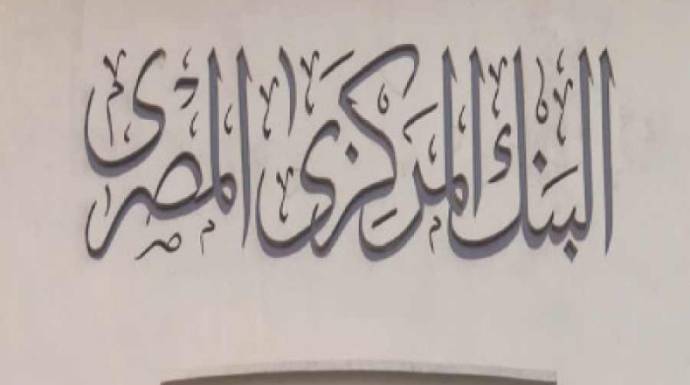 البنك المركزى المصرى